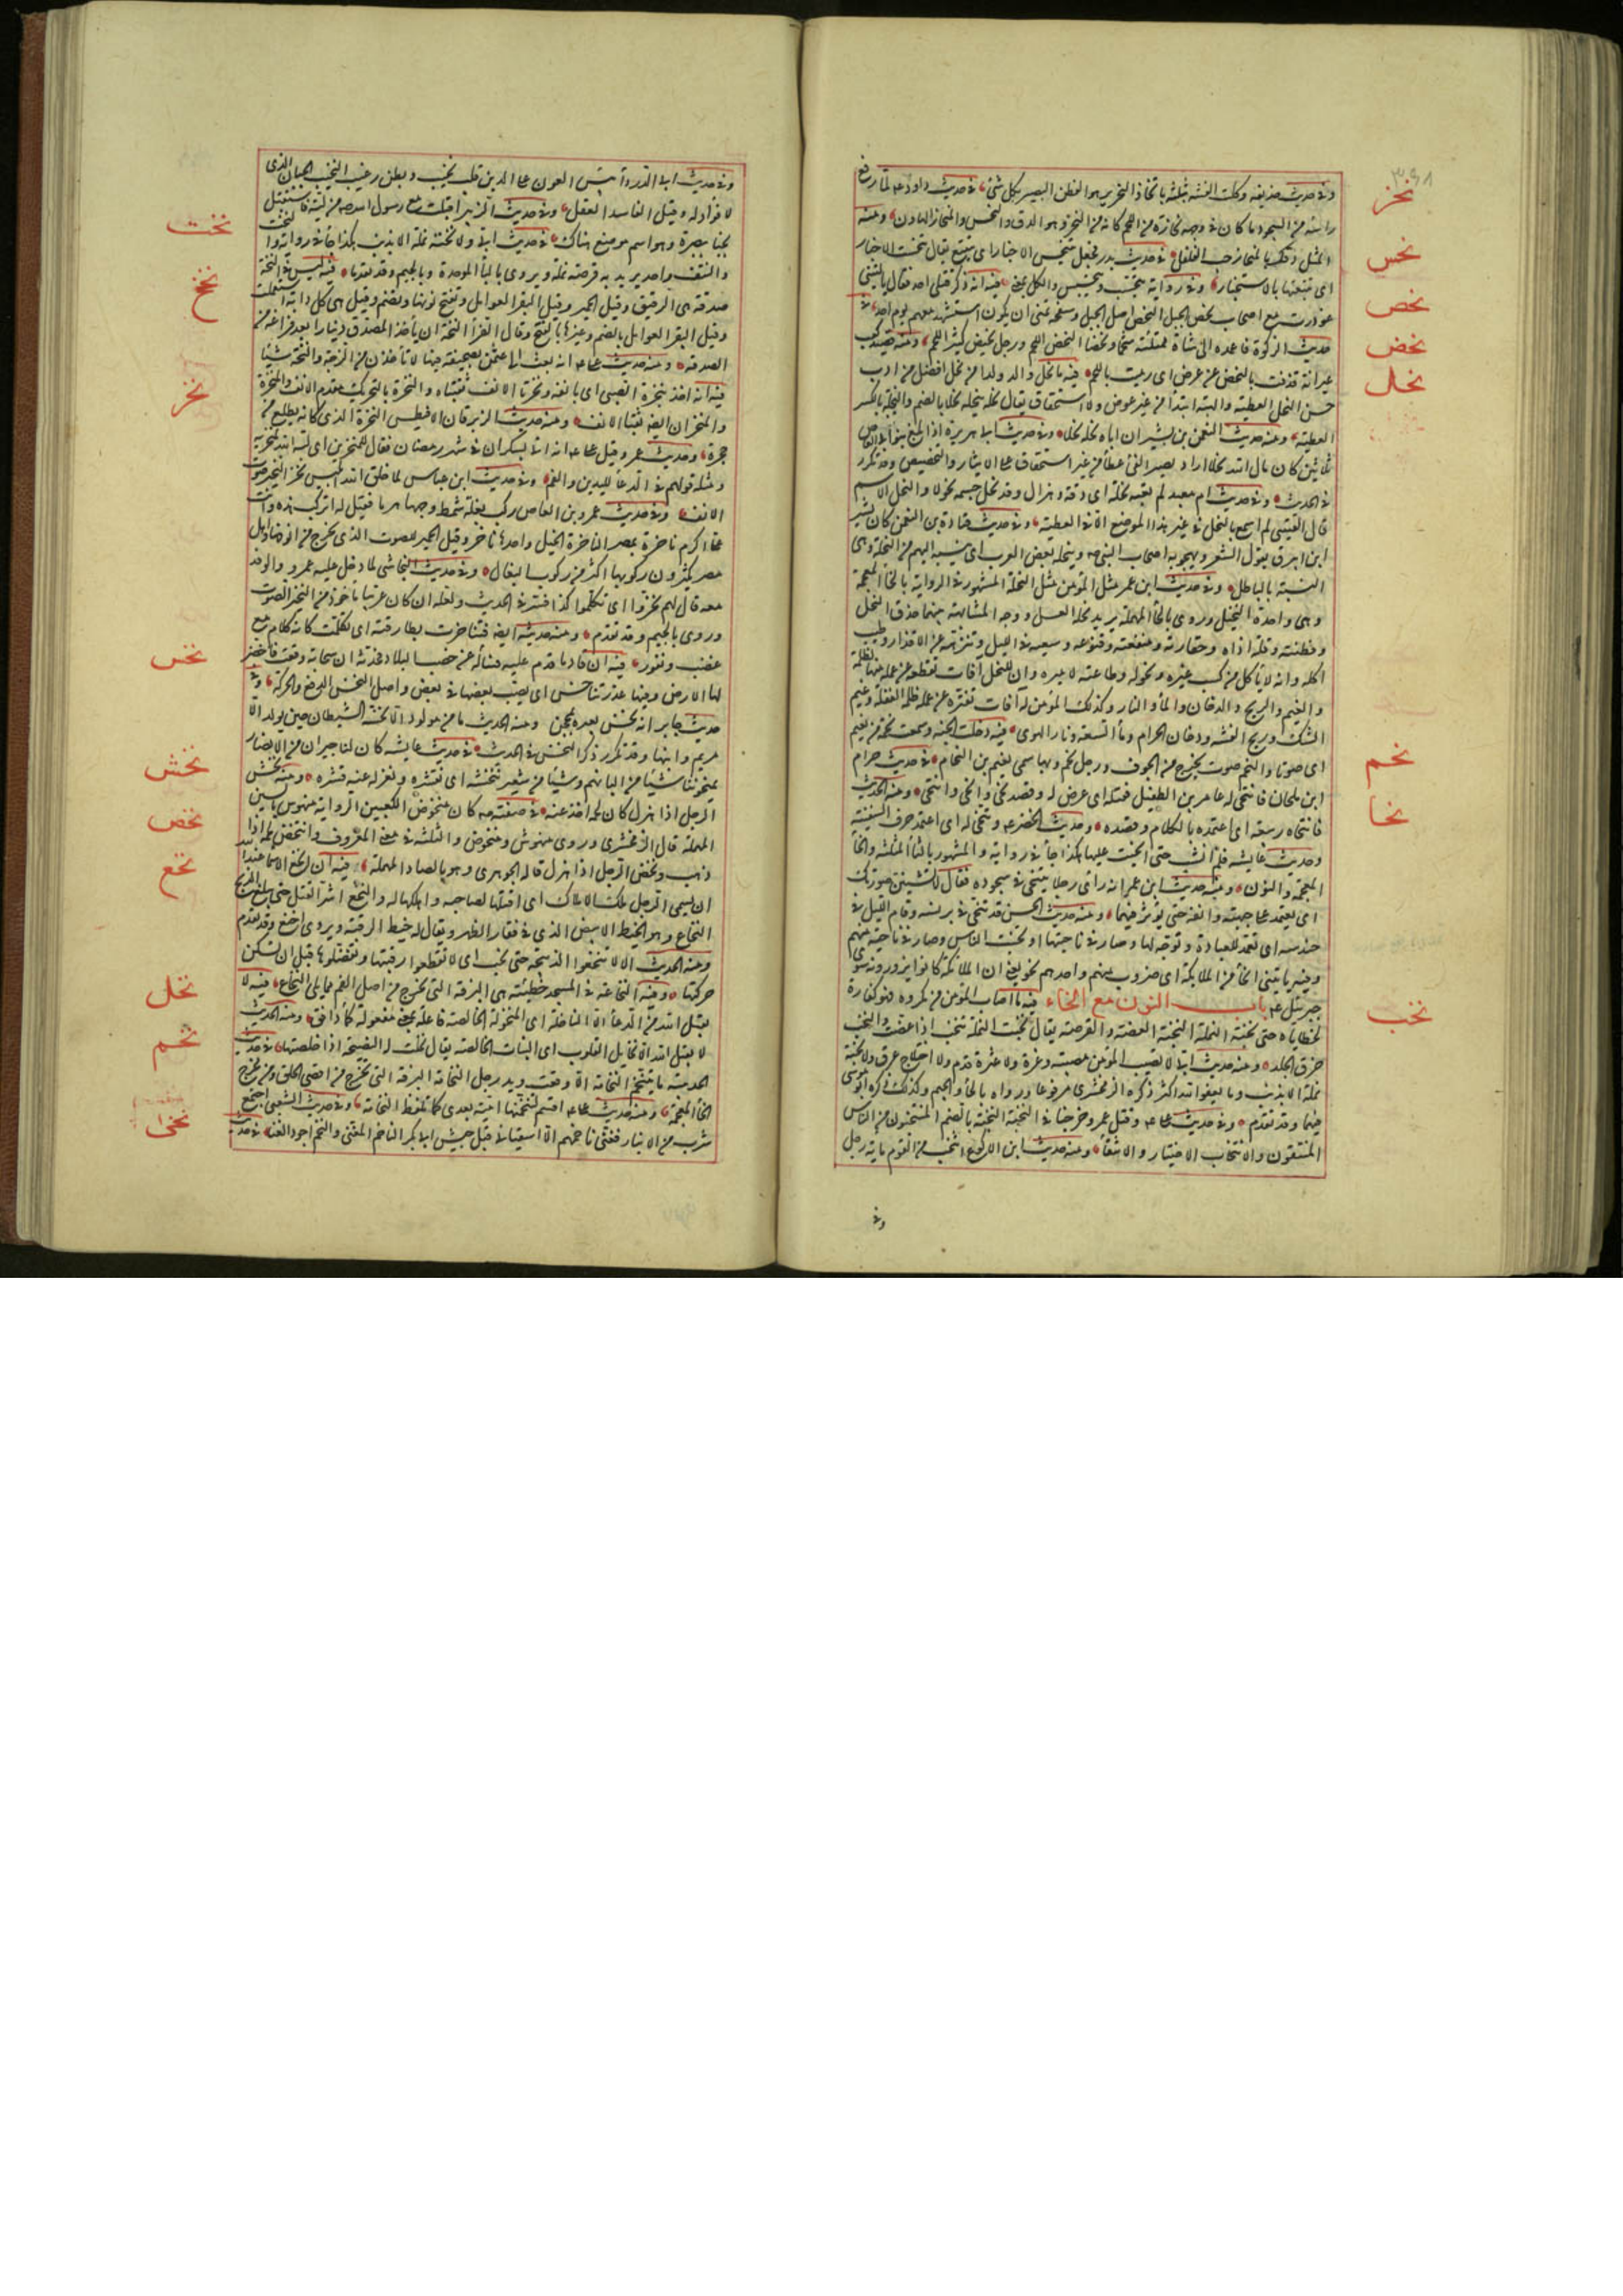 وفى حديث حذيفة وكلت الفتنة بثلثة بالحاد النحرير هو الفطن البصير بكل شئ فى حديث داود عم لما رفع
رأسه من السجود ما كان فى وجهه نحازة من اللحم كانه من النحز وهو الدق والنحس والمنحاز الهاون ومنه
المثل دقك بالمنحاز حب الفلفل فى حديث بدر فجعل يتنحس الاخبار اى يتتبع يقال تنحست الاخبار
اى تتبعتها بالاستخبار وفى رواية يتحسب ويتحسس والكل بمعنى فيه انه ذكر قتلى احد فقال يا ليتنى
غودرت مع اصحاب نحص الجبل النحص اصل الجبل وسفحه تمنى ان يكون استشهد معهم يوم احد فى
حديث الزكوة فاعمد الى شاة ممتلئة شحما ونحضا النحض اللحم ورجل نحيض كثير اللحم ومنه قصيد كعب
عيرانة قذفت بالنحض عن عرض اى رميت باللحم فيه ما نحل والد ولدا من نحل افضل من ادب
حسن النحل العطية والهبة ابتدا من غير عوض ولا استحقاق يقال نحله ينحله نحلا بالضم والنحلة بالكسر
العطية ومنه حديث النعمن بن بشير ان اباه نحله نحلا وفى حديث ابى هريرة اذا بلغ بنو ابى العاص
ثلثين كان مال الله نحلا اراد يصير الفئ عطاء من غير استحقاق على الايثار والتخصيص وقد تكرر
فى الحديث وفى حديث ام معبد لم تعبه نحلة اى دقة وهزال وقد نحل جسمه نحولا والنحل الاسم
قال القتيبى لم اسمع بالنحل فى غير هذا الموضع الا فى العطية وفى حديث قتادة بن النعمن كان بشير
ابن ابيرق يقول الشعر ويهجو به اصحاب النبى صم وينحله بعض العرب اى ينسبه اليهم من النحلة وهى
النسبة بالباطل وفى حديث ابن عمر مثل المؤمن مثل النحلة المشهور فى الرواية بالخا المعجمة
وهى واحدة النخيل وروى بالحا المهملة يريد نحلة العسل ووجه المشابهة بينهما حذق النحل
وفطنته وقلة اذاه وحقارته ومنفعته وقنوعه وسعيه فى الليل وتنزهه عن الاقذار وطيب
اكله وانه لا ياكل من كسب غيره ونحوله وطاعته لاميره وان للنحل افات تقطعه عن عمله منها الظلمة
والغيم والريح والدخان والماء والنار وكذلك المؤمن له آفات تفتره عن عمله ظلمة الغفلة وغيم
الشك وريح الفتنة ودخان الحرام وماء السعة ونار الهوى فيه دخلت الجنة وسمعت نحمة من نعيم
اى صوتا والنحيم صوت يخرج من الجوف ورجل نحم وبها سمى نعيم بن النحام فى حديث حرام
ابن ملحان فانتحى له عامر بن الطفيل فقتله اى عرض له وقصد نحا وانحى وانتحى ومنه الحديث
فانتحاه ربيعة اى اعتمده بالكلام وقصده وحديث الخضر عم وتنحى له اى اعتمد خرق السفينة
وحديث عايشة فلم انشب حتى انحيت عليها هكذا جاء فى رواية والمشهور بالثاء المثلثة والخا
المعجمة والنون ومنه حديث ابن عمر انه راى رجلا يتنحى فى سجوده فقال لا تشينن صورتك
اى يعتمد على جبهته وانفه حتى يؤثر فيهما ومنه حديث الحسن قد تنحى فى برنسه وقام الليل فى
حندسه اى تعمد للعبادة وتوجه لها وصار فى ناحيتها او تجنب الناس وصار فى ناحية منهم
وفيه ياتينى انحاء من الملايكة اى ضروب منهم واحدهم نحو يعنى ان الملائكة كانوا يزورونه سوى
جبرئيل عم باب النون مع الخاء فيه ما اصاب المؤمن من مكروه فهو كفارة
لخطاياه حتى نخبة النملة النخبة العضة والقرصة يقال نخبت النملة تنخب اذا عضت والنخب
خرق الجلد ومنه حديث ابى لا تصيب المؤمن مصيبة ذعرة ولا عثرة قدم ولا اختلاج عرق ولا نخبة
نملة الا بذنب وما يعفو الله اكثر ذكره الزمخشرى مرفوعا ورواه بالخاء والجيم وكذلك ذكره ابو موسى
فيهما وقد تقدم وفى حديث على عم وقيل عمر وخرجنا فى النخبة النخبة بالضم المنتخبون من الناس
المنتقون والانتخاب الاختيار والانتقاء ومنه حديث ابن الاكوع انتخب من القوم ماية رجل
وفى
نحز
نحس
نحص
نحض
نحل
نحم
نحا
نخب
وفى حديث ابى الدرداء بئس العون على الدين قلب نخيب وبطن رغيب النخيب الجبان الذى
لا فؤاد له وقيل الفاسد العقل وفى حديث الزبير اقبلت مع رسول الله صم من لية فاستقبل
نخبا ببصره وهو اسم موضع هناك فى حديث ابى ولا نختة نملة الا بذنب هكذا جاء فى رواية والنخت
والنتف واحد يريد به قرصة نملة ويروى بالباء الموحدة وبالجيم وقد تقدما فيه ليس فى النخة
صدقة هى الرقيق وقيل الحمير وقيل البقر العوامل وتفتح نونها وتضم وقيل هى كل دابة استعملت
وقيل البقر العوامل بالضم وغيرها بالفتح وقال الفراء النخة ان ياخذ المصدق دينارا بعد فراغه من
الصدقة ومنه حديث على عم انه بعث الى عثمن بصحيفة فيها لا تأخذن من الزخة والنخة شيئا
فيه انه اخذ بنخرة الصبى اى بانفه ونخرتا الانف ثقبتاه والنخرة بالتحريك مقدم الانف والمنخرة
والمنخران ايضا ثقبتا الانف ومنه حديث الزبرقان الافيطس النخرة الذى كانه يطلع من
جحره وحديث عمر وقيل على عم انه اتى بسكران فى شهر رمضان فقال للمنخرين اى كبه الله لمنخريه
ومثله قولهم فى الدعا لليدين والفم وفى حديث ابن عباس لما خلق الله ابليس نخر النخير صوت
الانف وفى حديث عمرو بن العاص ركب بغلة شمط وجهها هرما فقيل له اتركب هذه وانت
على اكرم ناخرة بمصر الناخرة الخيل واحدها ناخر وقيل الحمير للصوت الذى يخرج من انوفها واهل
مصر يكثرون ركوبها اكثر من ركوب البغال وفى حديث النجاشى لما دخل عليه عمرو والوفد
معه قال لهم نخروا اى تكلموا كذا فسر فى الحديث ولعله ان كان عربيا ماخوذ من النخير الصوت
وروى بالجيم وقد تقدم ومنه حديثه ايضا فتناخرت بطارقته اى تكلمت كانه كلام مع
غضب ونفور فيه ان قادما قدم عليه فسأله عن خصب البلاد فحدثه ان سحابة وقعت فاخضر
لها الارض وفيها غدر تناخس اى يصب بعضها فى بعض واصل النخس الدفع والحركة وفى
حديث جابر انه نخس بعيره بمحجن ومنه الحديث ما من مولود الا نخسه الشيطان حين يولد الا
مريم وابنها وقد تكرر ذكر النخس فى الحديث فى حديث عايشة كان لنا جيران من الانصار
يمنحوننا شيئا من البانهم وشيئا من شعير ننخشه اى نقشره ونعزل عنه قشره ومنه نخش
الرجل اذا هزل كان لحمه اخذ عنه فى صفته صم كان منخوص الكعبين الرواية منهوس بالسين
المهملة قال الزمخشرى وروى منهوش ومنخوص والثلثة فى معنى المعروق وانتخص لحمه اذا
ذهب ونخص الرجل اذا هزل قاله الجوهرى وهو بالصاد المهملة فيه ان انخع الاسماء عند الله
ان يتسمى الرجل ملك الاملاك اى اقتلها لصاحبه واهلكها له والنخع اشد القتل حتى يبلغ الذبح
النخاع وهو الخيط الابيض الذى فى فقار الظهر ويقال له خيط الرقبة ويروى اخنع وقد تقدم
ومنه الحديث الا لا تنخعوا الذبيحة حتى تجب اى لا تقطعوا رقبتها وتفصلوها قبل ان تسكن
حركتها وفيه النخاعة فى المسجد خطيئة هى البزقة التى تخرج من اصل الفم مما يلى النخاع فيه لا
يقبل الله من الدعاء الا الناخلة اى المنخولة الخالصة فاعلة بمعنى مفعولة كماء دافق ومنه الحديث
لا يقبل الله الا نخايل القلوب اى النيات الخالصة يقال نخلت له النصيحة اذا خلصتها فى حديث
الحديبية ما يتنخم نخامة الا وقعت فى يد رجل النخامة البزقة التى تخرج من اقصى الحلق ومن مخرج
الخاء المعجمة ومنه حديث على عم اقسم لتنخمنها امية بعدى كما تلفظ النخامة وفى حديث الشعبى اجتمع
شرب من الانبار فغنى ناخمهم الا اسقيانى قبل جيش ابى بكر الناخم المغنى والنخم اجود الغناء فى حديث
نخت
نخخ
نخر
نخس
نخش
نخص
نخع
نخل
نخم
نخى